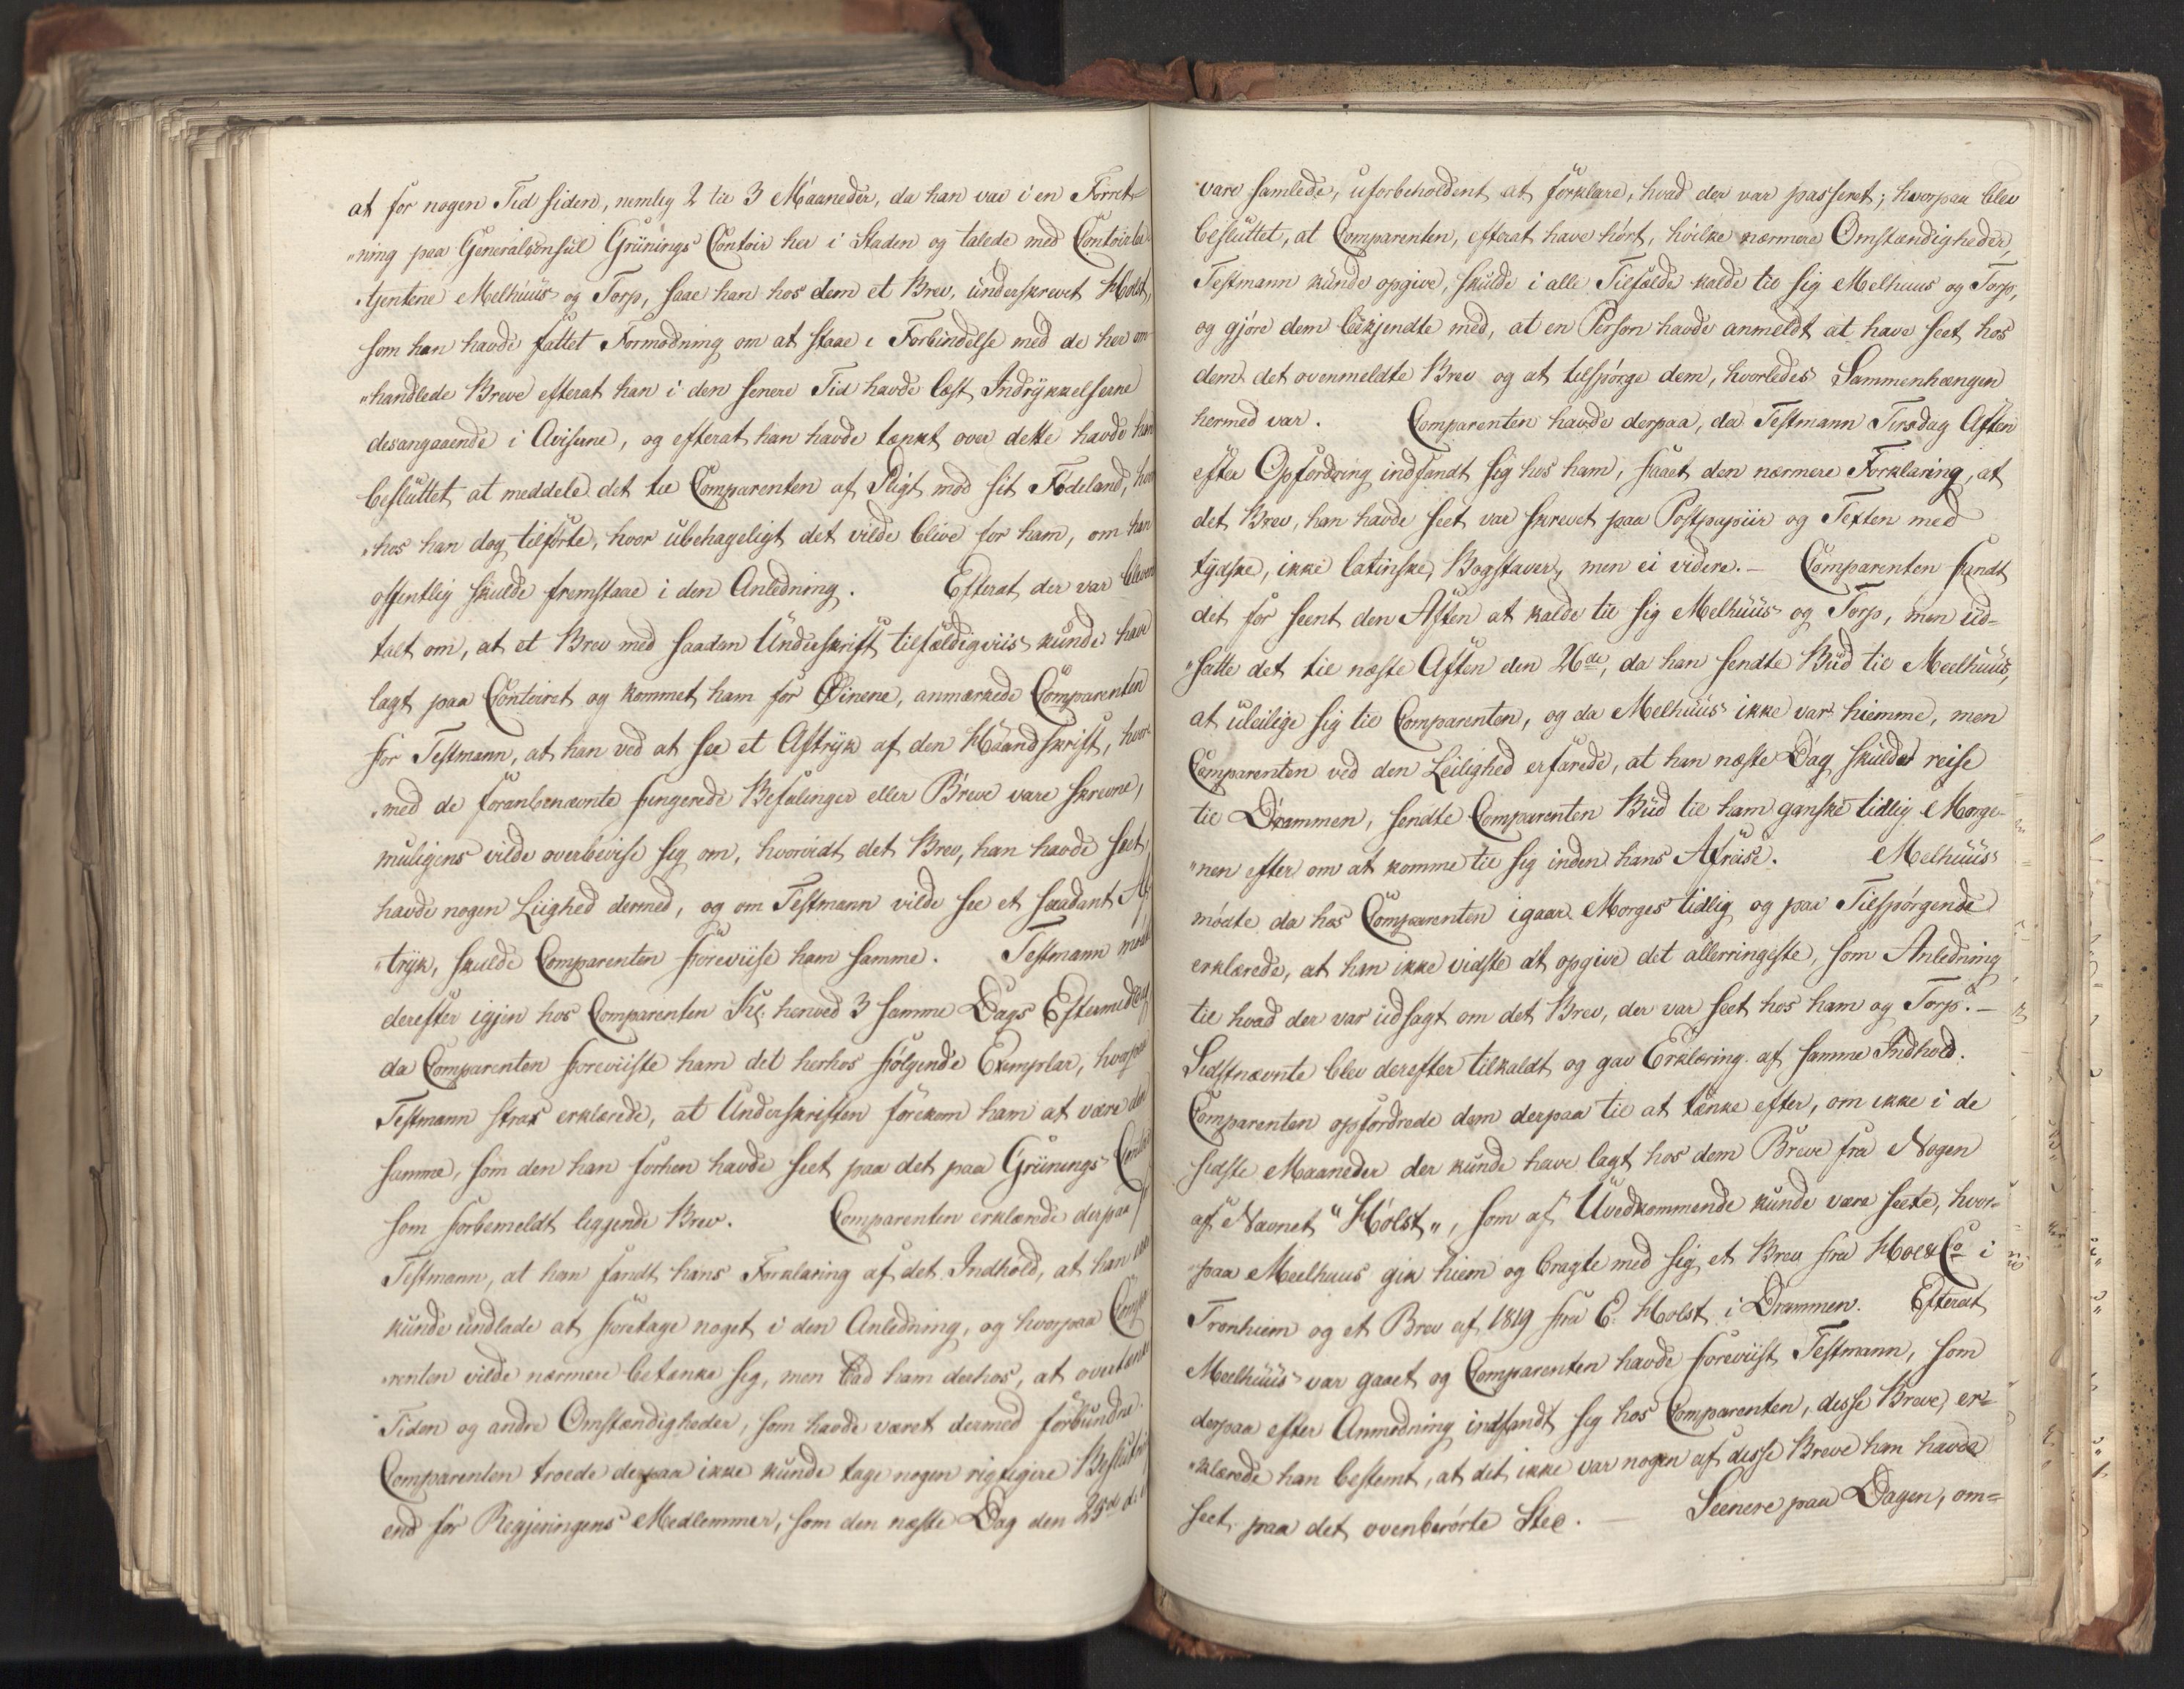 at for nogen Tid siden, nemlig 2 til 3 Maaneder, da han var i en Forret-
„ning paa Generalconsul Grünings Contoir her i Staden og talede med Contoirbe-
„tjentene Melhuus og Torp, saae han hos dem et Brev, underskrevet Holst,
som han havde fattet Formodning om at staae i Forbindelse med de her om-
„handlede Breve efterat han i den senere Tid havde læst Indrykkelserne
desangaaende i Aviserne, og efterat han havde tænkt over dette havde han
besluttet at meddele det til Comparenten af Pligt mod sit Fødeland, hvor
„hos han dog tilføiede, hvor ubehageligt det vilde blive for ham, om han
offentlig skulde fremstaae i den Anledning. Efterat der var bleven
talt om, at et Brev med saadan Underskrift tilfældigviis kunde have
lagt paa Contoiret og kommet ham for Øinene, anmærkede Comparenten
for Testmann, at han ved at see et Aftryk af den Haandskrift, hvor-
„med de foranbenævnte fungerede Befalinger eller Breve vare skrevne,
muligens vilde overbevise sig om, hvorvidt det Brev, han havde seet,
havde nogen Liighed dermed, og om Testmann vilde see et saadant Af-
„tryk, skulde Comparenten foreviise ham samme. Testmann mødte
derefter igjen hos Comparenten Kl. henved 3 samme Dags Eftermiddag
da Comparenten foreviiste ham det herhos følgende Exemplar, hvorpaa
Testmann strax erklærede, at Underskriften forekom ham at være den
samme, som den han forhen havde seet paa det paa Grünings Contoir
som forbemeldt liggende Brev. Comparenten erklærede derpaa
Testmann, at han fandt hans Forklaring af det Indhold, at han
kunde undlade at foretage noget i den Anledning, og hvorpaa Compa-
„renten vilde nærmere betænke sig, men bad ham derhos, at overtænke
Tiden og andre Omstændigheder, som havde været dermed forbundne.
Comparenten troede derpaa ikke kunde tage nogen rigtigere Beslutning
end for Regjeringens Medlemmer, som den næste Dag den 25de
vare samlede, uforbeholdent at forklare, hvad der var passeret; hvorpaa blev
besluttet, at Comparenten, efterat have hørt, hvilke nærmere Omstændigheder,
Testmann kunde opgive, skulde i alle Tilfælde kalde til sig Melhuus og Torp,
og gjøre dem bekjendte med, at en Person havde anmeldt at have seet hos
dem det ovenmeldte Brev og at tilspørge dem, hvorledes Sammenhængen
hermed var. Comparenten havde derpaa, da Testmann Tirsdag Aften
efter Opfordring indfandt sig hos ham, faaet den nærmere Forklaring, at
det Brev, han havde seet var skrevet paa Postpapiir og Texten med
tydske, ikke latinske, Bogstaver, men ei videre. – Comparenten fandt
det for seent den Aften at kalde til sig Melhuus og Torp, men ud-
„satte det til næste Aften den 26de, da han sendte Bud til Meelhuus,
at uleilige sig til Comparenten, og da Melhuus ikke var hiemme, men
Comparenten ved den Leilighed erfarede, at han næste Dag skulde reise
til Drammen, sendte Comparenten Bud til ham ganske tidlig Morge-
„nen efter om at komme til sig inden hans Afreise. Melhuus
mødte da hos Comparenten igaar Morges tidlig og paa Tilspørgende
erklærede, at han ikke vidste at opgive det allerringeste, som Anledning
til hvad der var udsagt om det Brev, der var seet hos ham og Torp. –
Sidstnævnte blev derefter tilkaldt og gav Erklæring af samme Indhold.
Comparenten opfordrede dem derpaa til at tænke efter, om ikke i de
sidste Maaneder der kunde have lagt hos dem Breve fra Nogen
af Navnet "Holst", som af Uvedkommende kunde være seete, hvor-
„paa Meelhuus gik hiem og bragte med sig et Brev fra Hoe & Co i
Tronhiem og et Brev af 1819 fra E. Holst i Drammen. Efterat
Meelhuus var gaaet og Comparenten havde foreviist Testmann, som
derpaa efter Anmodning indfandt sig hos Comparenten, disse Breve, er-
„klærede han bestemt, at det ikke var nogen af disse Breve han havde
seet paa det ovenberørte Sted. – Seenere paa Dagen, om-